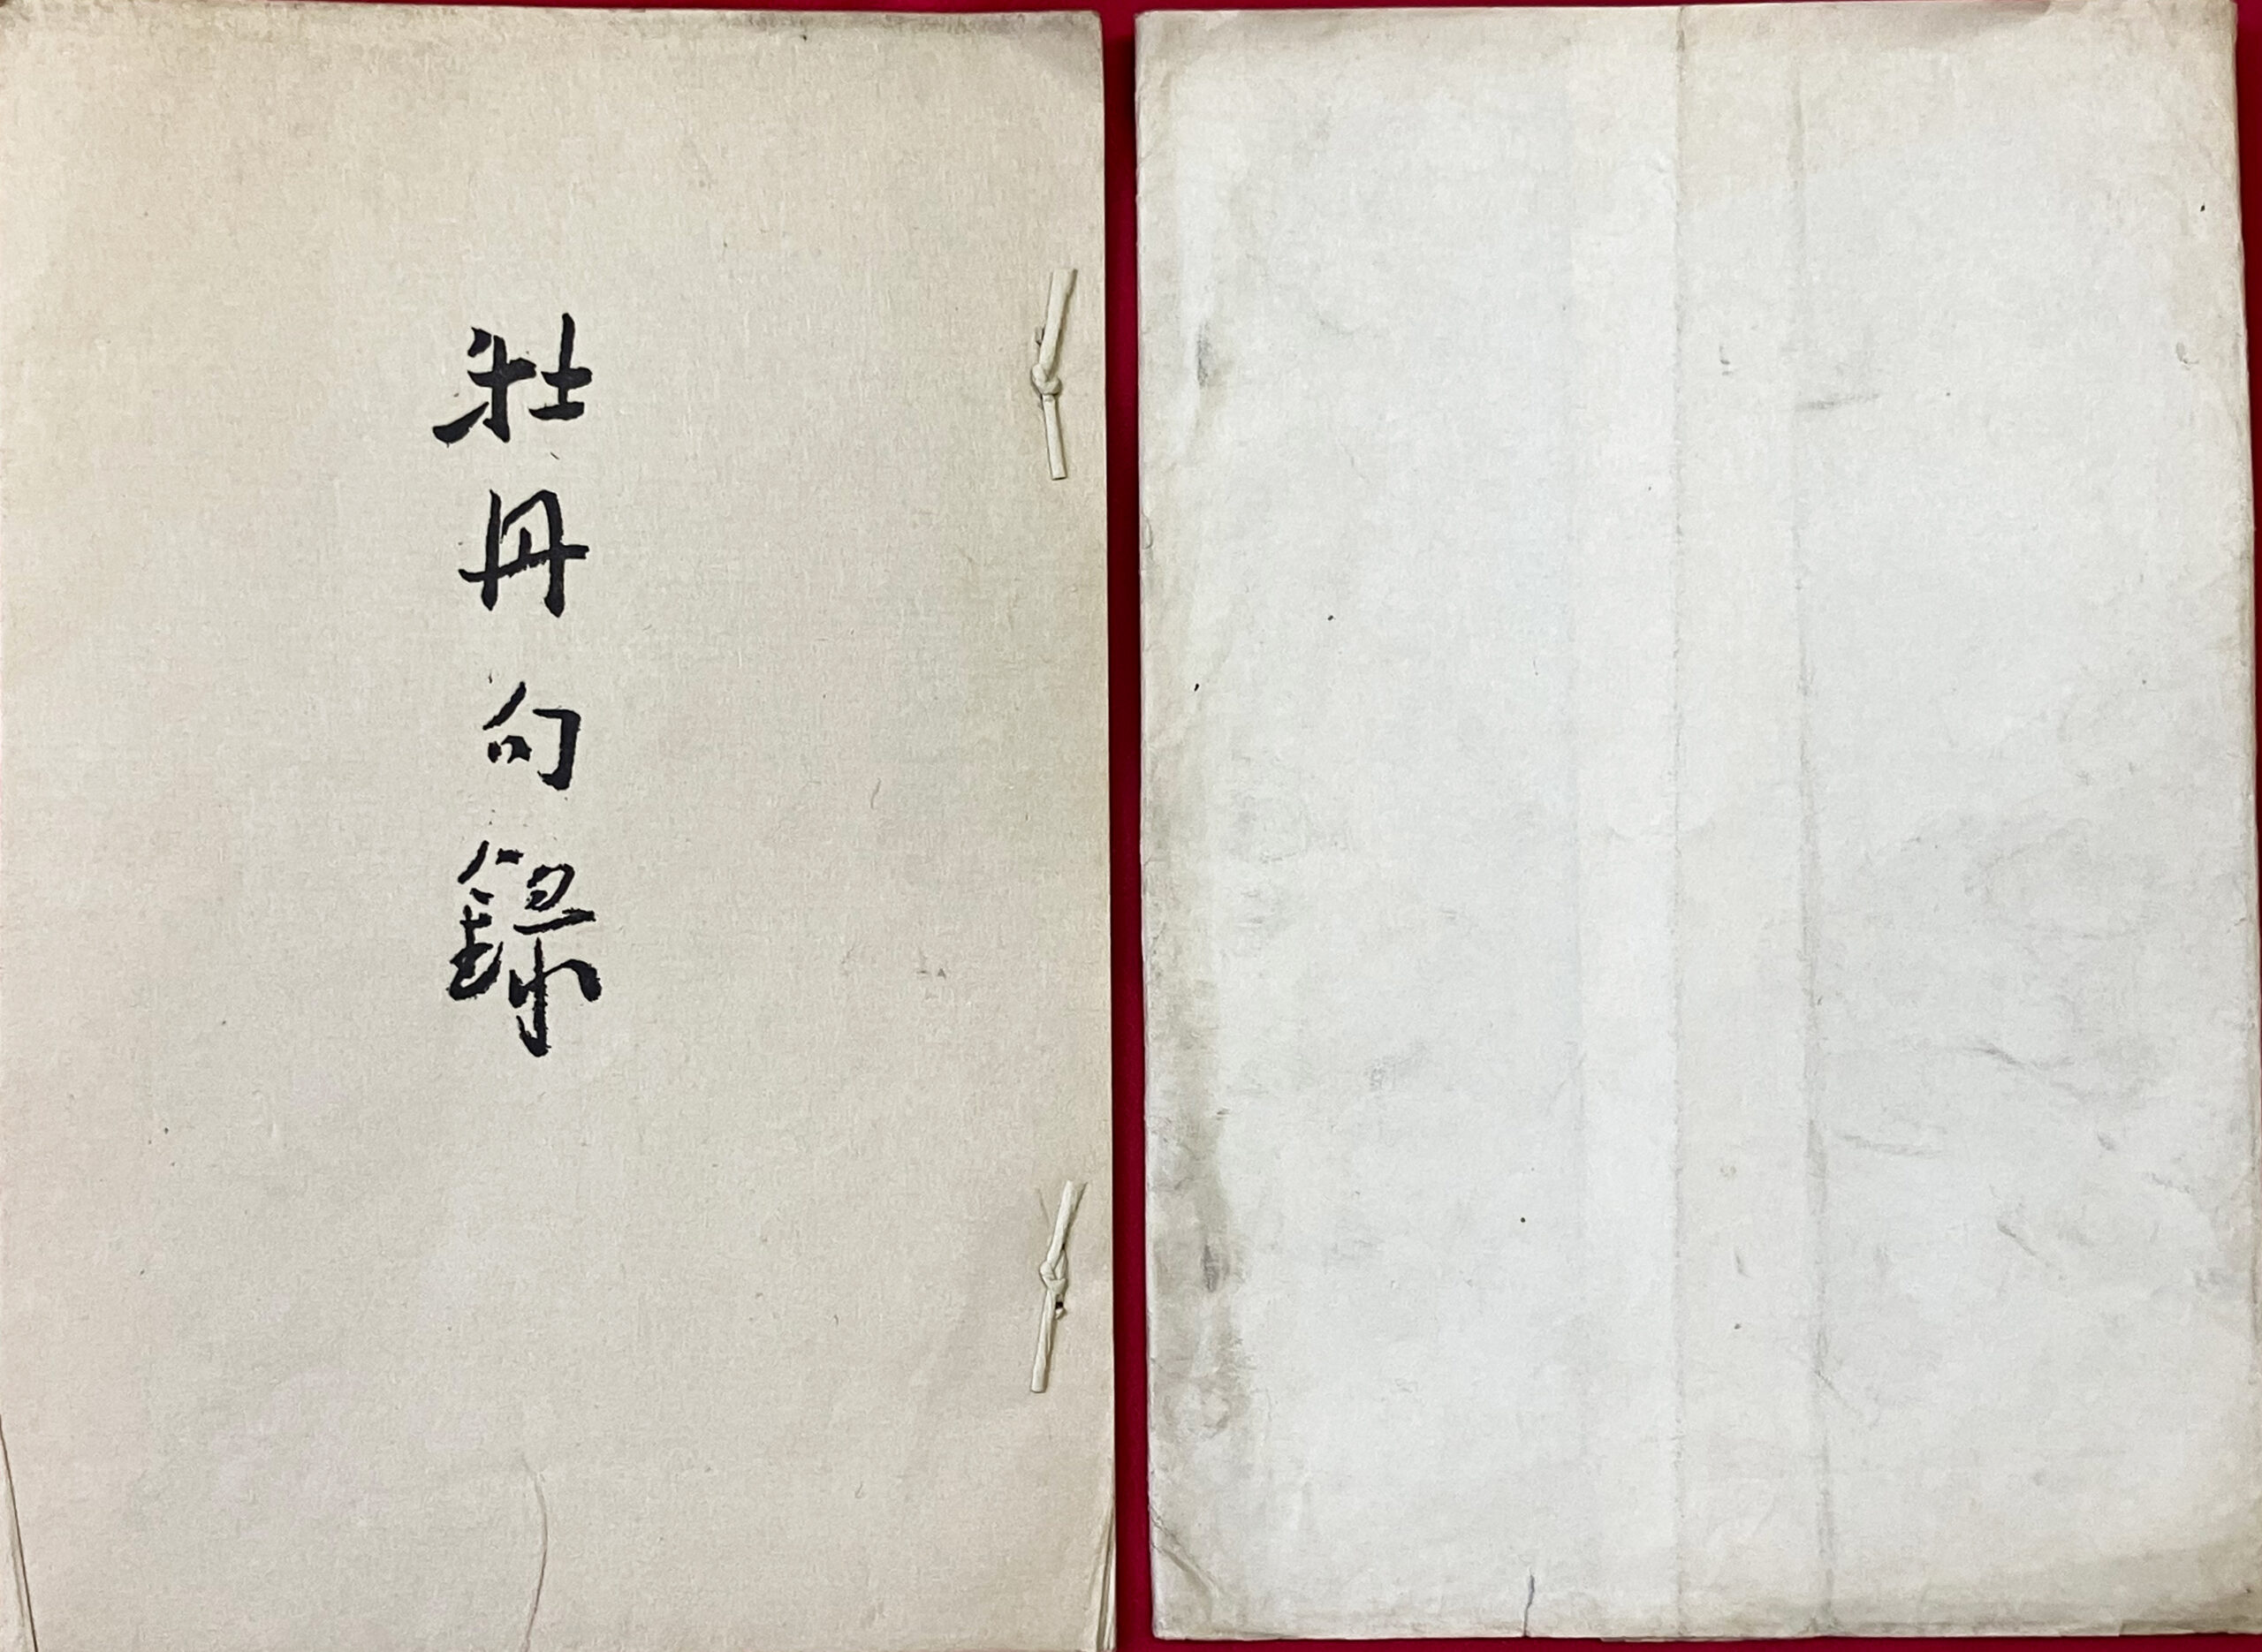 牡丹句録